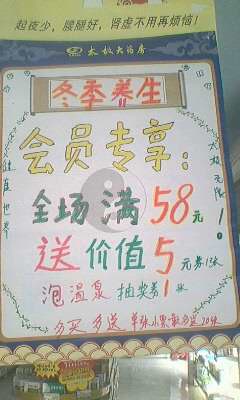 起夜少，腰腿好，肾虚不用再烦恼！
太极大药房
冬季养生
会员专享：
全场满58元
送价值5元券1张
泡温泉抽奖券1张
多买多送 单张小票最多送10张